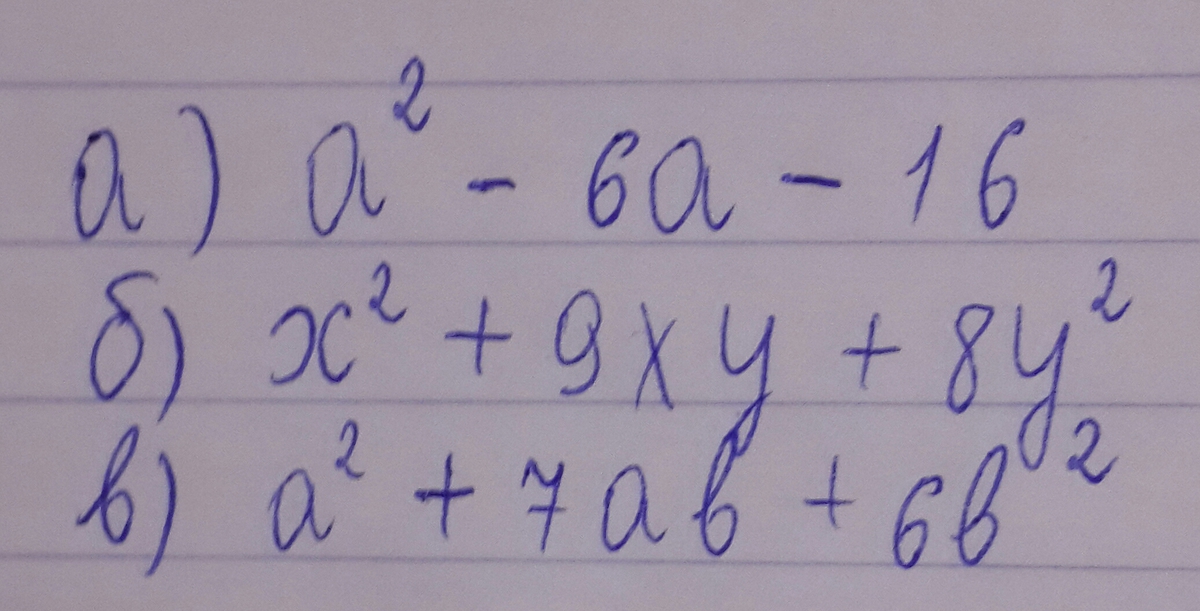 а) a² - 6a - 16
б) x² + 9xy + 8y²
в) a² + 7ab + 6b²